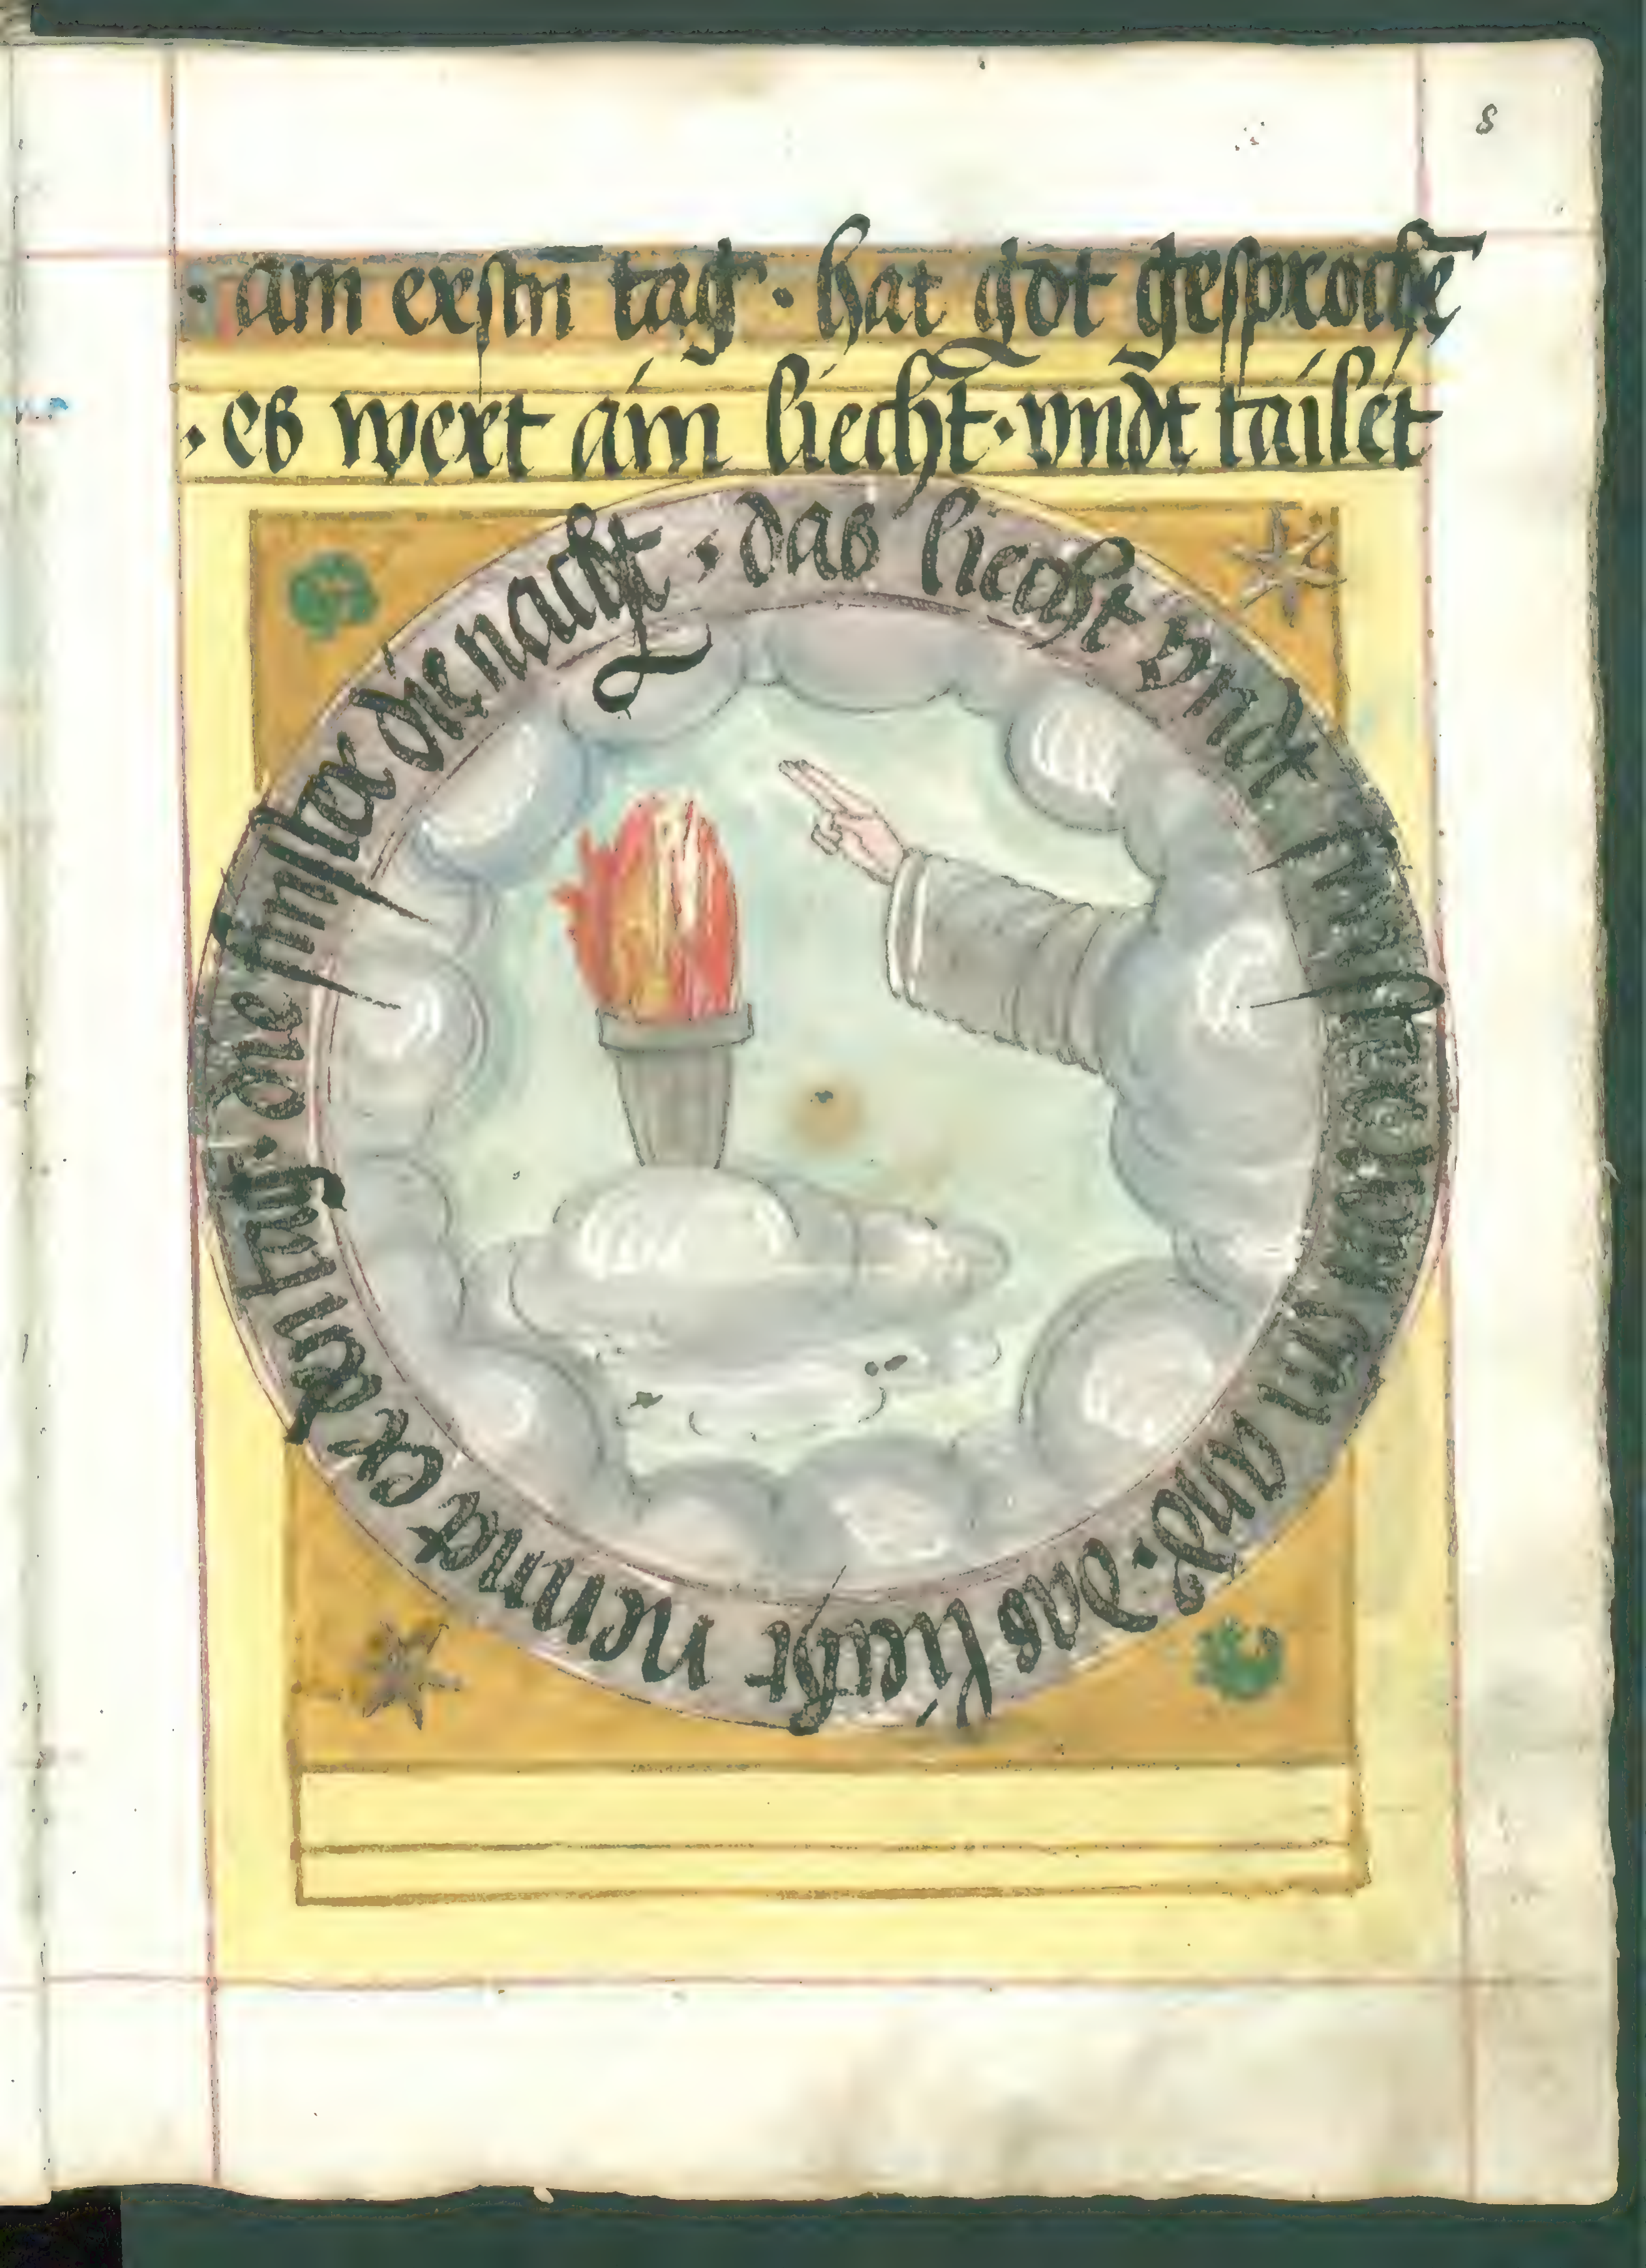 8
· am erstn tag · hat got gesprochē
· es wert ain liecht · vndt tailet
· das liecht vndt finster von ain ande · das liecht nennet er den tag · die finster die nacht